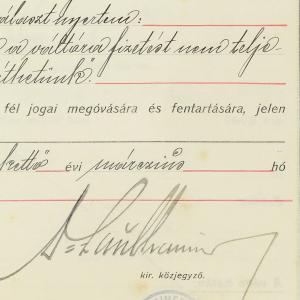 választ nyertem:
a váltóra fizetést nem telje-
íthetünk".
fél jogai megóvására és fentartására, jelen
kettő évi március hó
kir. közjegyző.